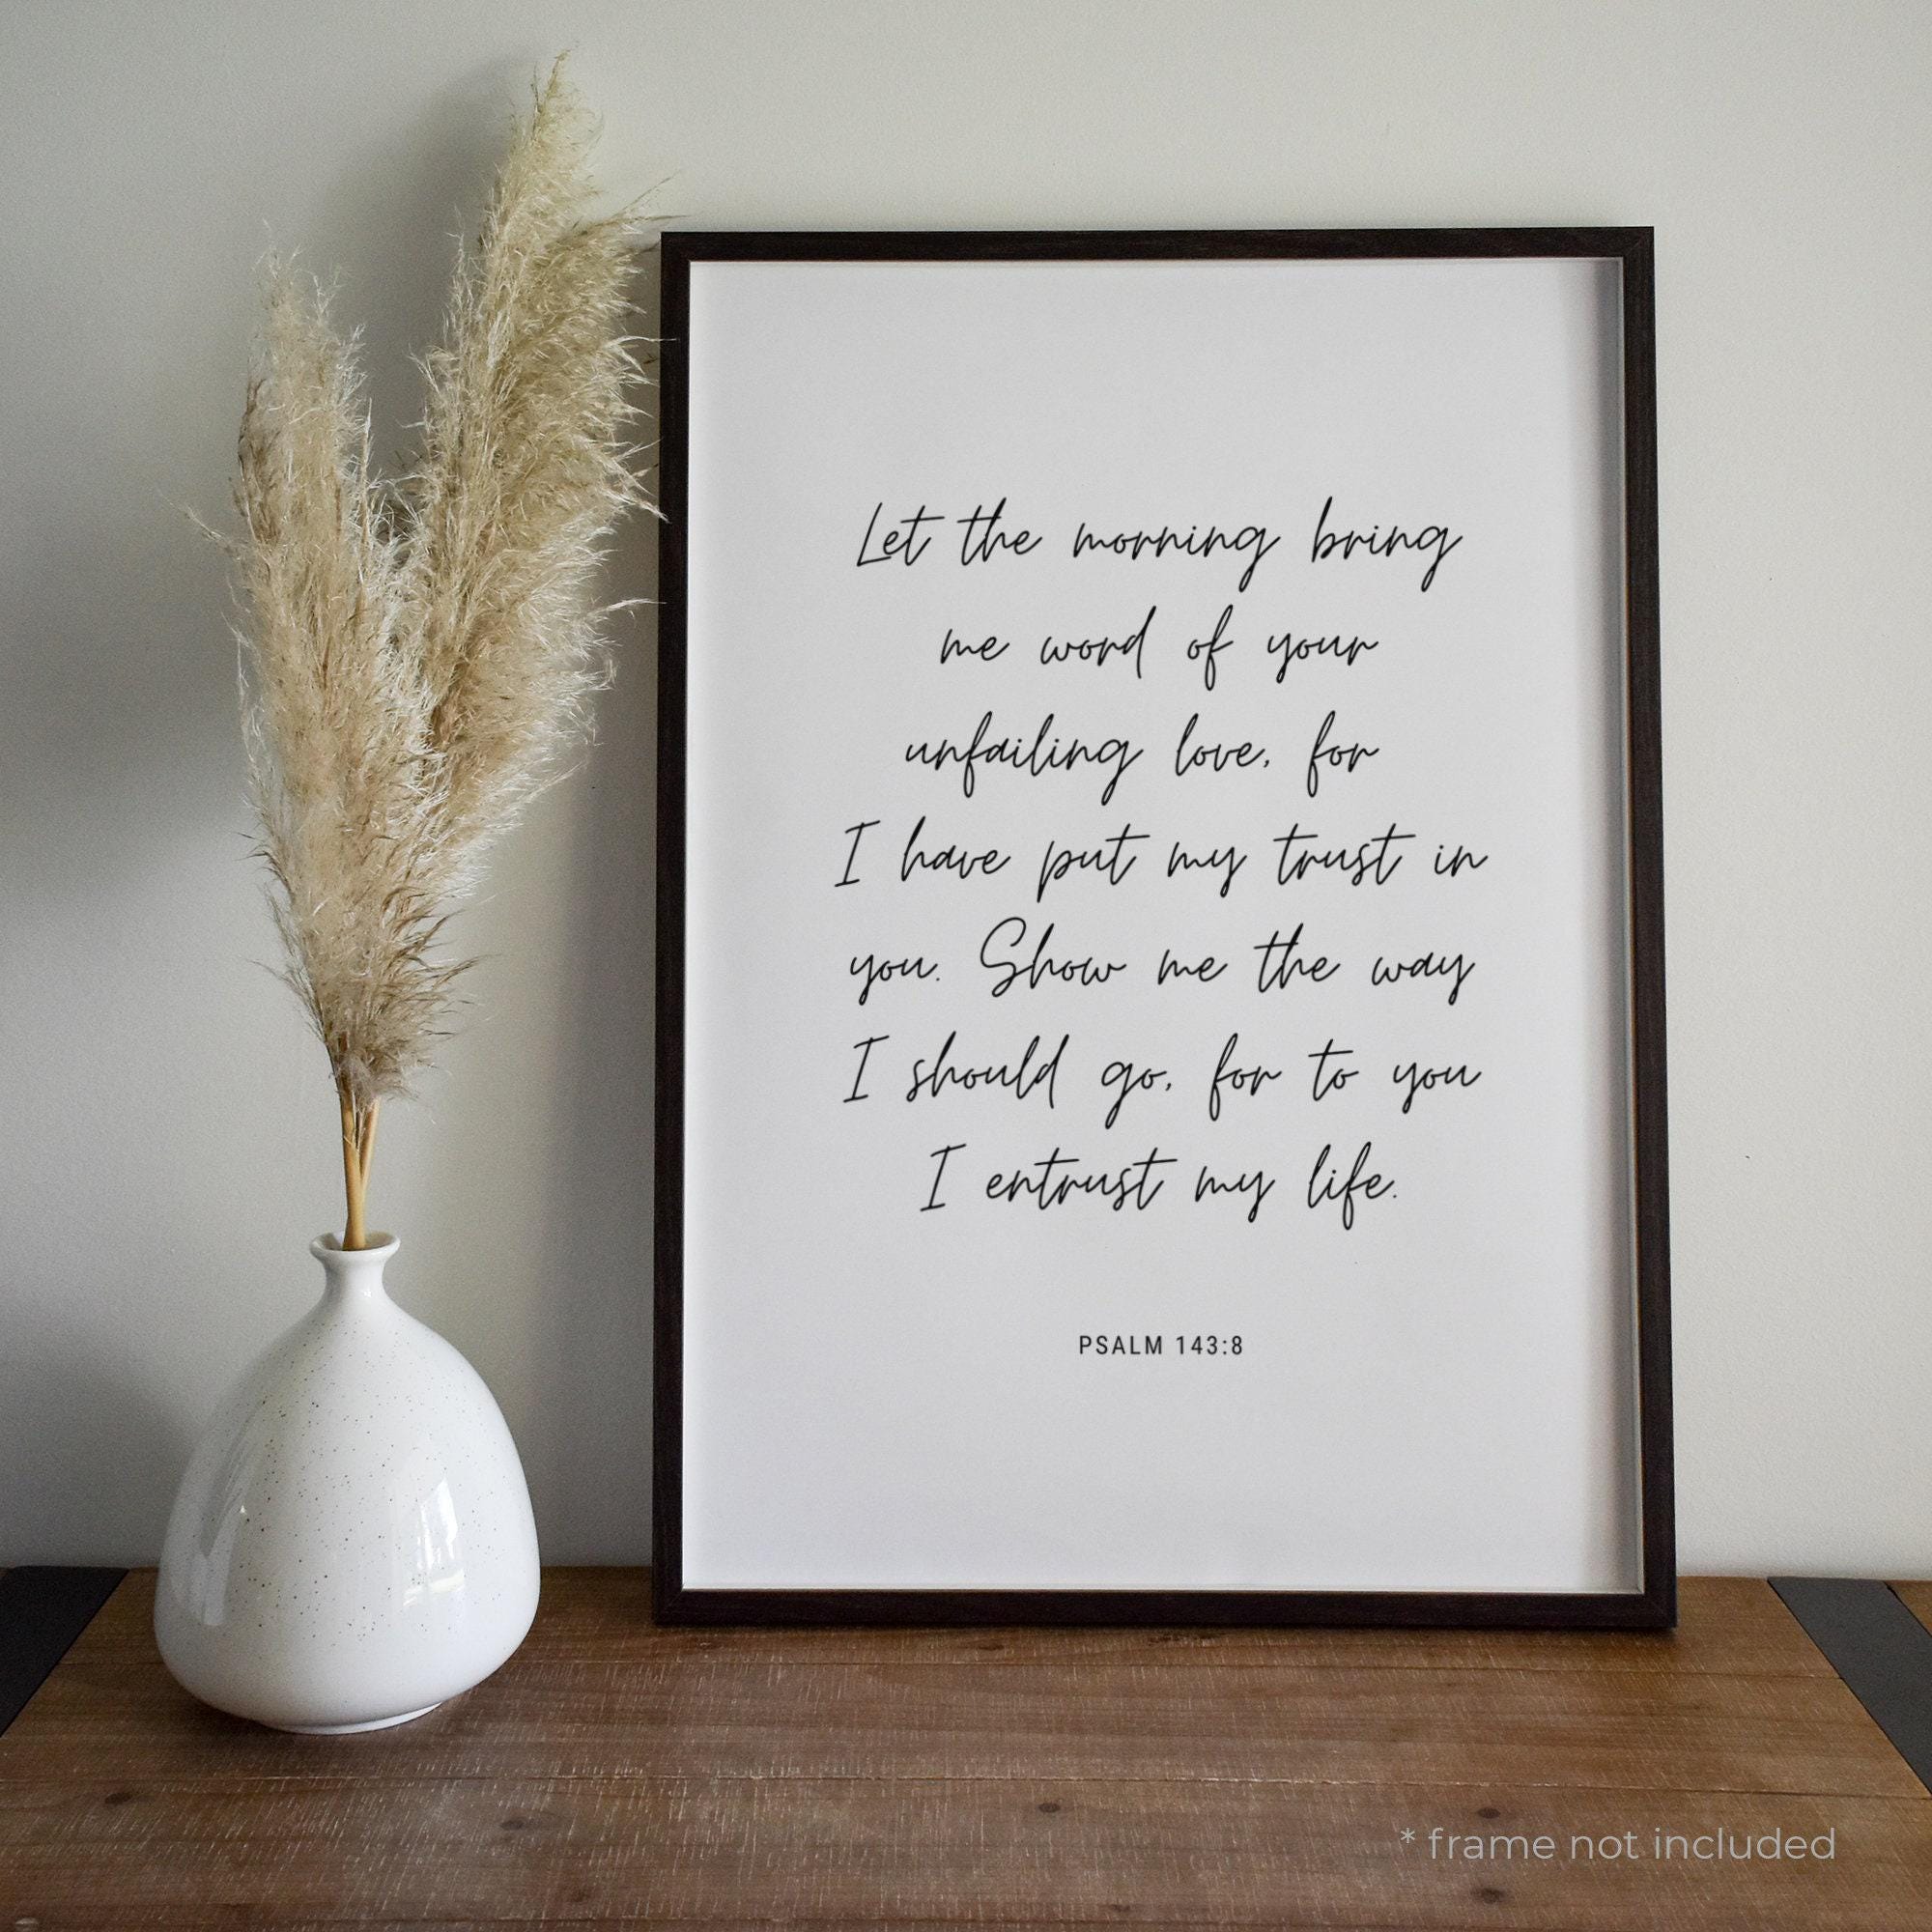 Let the morning bring
me word of your
unfailing love, for
I have put my trust in
you. Show me the way
I should go, for to you
I entrust my life.
PSALM 143:8
* frame not included